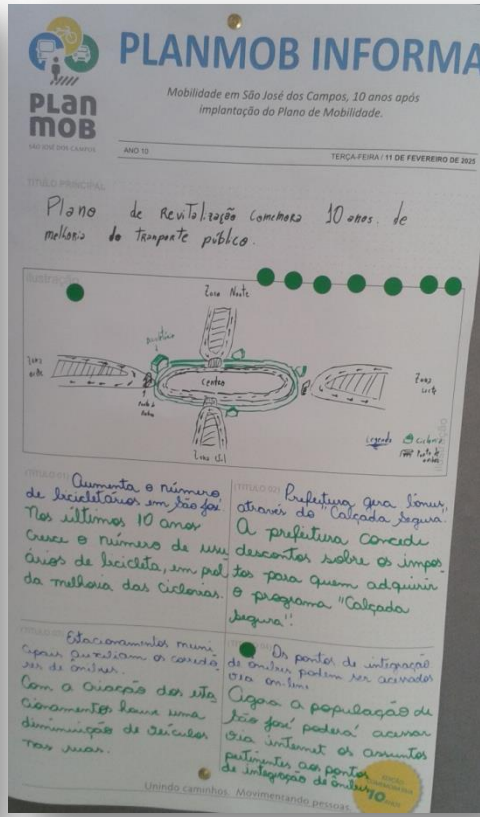 PLAN
MOB
SÃO JOSÉ DOS CAMPOS
PLANMOB INFORMA
Mobilidade em São José dos Campos, 10 anos após
implantação do Plano de Mobilidade.
ANO 10
TERÇA-FEIRA / 11 DE FEVEREIRO DE 2025
TÍTULO PRINCIPAL
Plano de Revitalização comemora 10 anos de
melhoria do Tranporte público.
ilustração
Zona Norte
Centro
Zona Sul
Zona
Zona
Legenda
Ponto de
(TÍTULO 01)
Aumenta o número
de bicicletários em São José
Nos últimos 10 anos
cresce o número de usu
ários de bicicleta, em prol
da melhoria das ciclovias.
(TÍTULO 02)
Prefeitura gera bônus
através do "Calçada Segura"
A prefeitura concede
descontos sobre os impos
tos para quem adquirir
o programa "Calçada
Segura".
Estacionamentos muni
cipais auxiliam os corredo
res de ônibus.
Com a criação dos esta
cionamentos houve uma
diminuição de veículos
nas ruas.
Os pontos de integração
de ônibus podem ser acessados
via on-line
Agora a população de
São José poderá acessar
via internet os assuntos
pertinentes aos pontos
de integração de ônibus
EDIÇÃO
COMEMORATIVA
10 ANOS
Unindo caminhos. Movimentando pessoas.